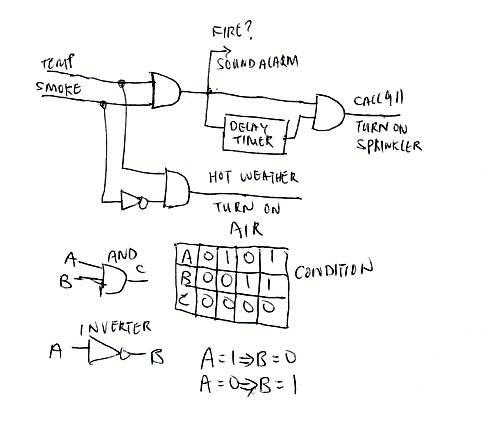 FIRE?
SOUND ALARM
TEMP
SMOKE
CALL 911
TURN ON
SPRINKLER
DELAY
TIMER
HOT WEATHER
TURN ON
AIR
AND
A
B
C
A 0 1 0 1
B 0 0 1 1
C 0 0 0 0
CONDITION
INVERTER
A B
A=1⇒B=0
A=0⇒B=1